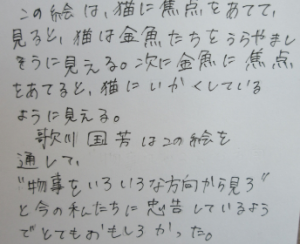 この絵は、猫に焦点をあてて、
見ると、猫は金魚たちをうらやまし
そうに見える。次に金魚に焦点
をあてると、猫にいかくしている
ように見える。
歌川国芳はこの絵を
通して、
"物事をいろいろな方向から見ろ"
と今の私たちに忠告しているよう
でとてもおもしろかった。